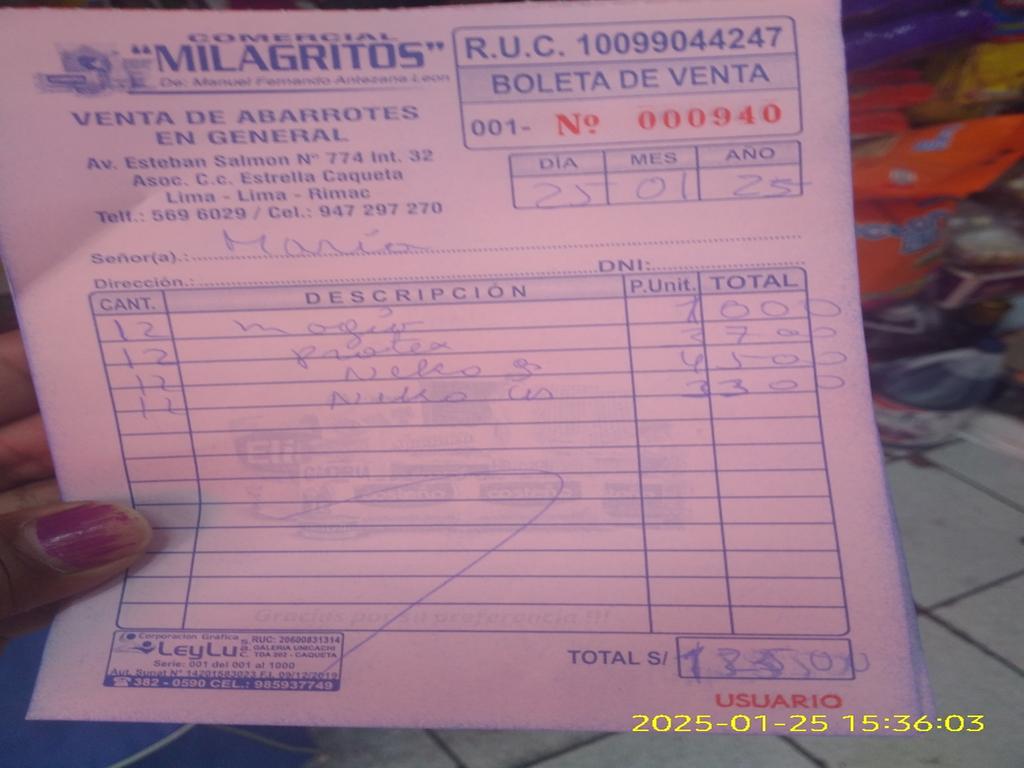 COMERCIAL
"MILAGRITOS"
De: Manuel Fernando Antezana Leon
VENTA DE ABARROTES
EN GENERAL
Av. Esteban Salmon N° 774 Int. 32
Asoc. C.c. Estrella Caqueta
Lima - Lima - Rimac
Telf.: 569 6029 / Cel.: 947 297 270
R.U.C. 10099044247
BOLETA DE VENTA
001- Nº 000940
DÍA MES AÑO
25 01 25
Señor(a).: Maria
Dirección.: DNI:
CANT. DESCRIPCIÓN P.Unit. TOTAL
12 1000
12 protex 3700
12 Neko 4500
12 Neko 3300
Gracias por su preferencia !!!
Corporacion Gráfica
LeyLu S.A.C.
RUC: 20600831314
GALERIA UNICACHI
TDA 202 - CAQUETA
Serie: 001 del 001 al 1000
Aut. Sunat N° F.I. 09/12/2019
382 - 0590 CEL.: 985937749
TOTAL S/
USUARIO
2025-01-25 15:36:03